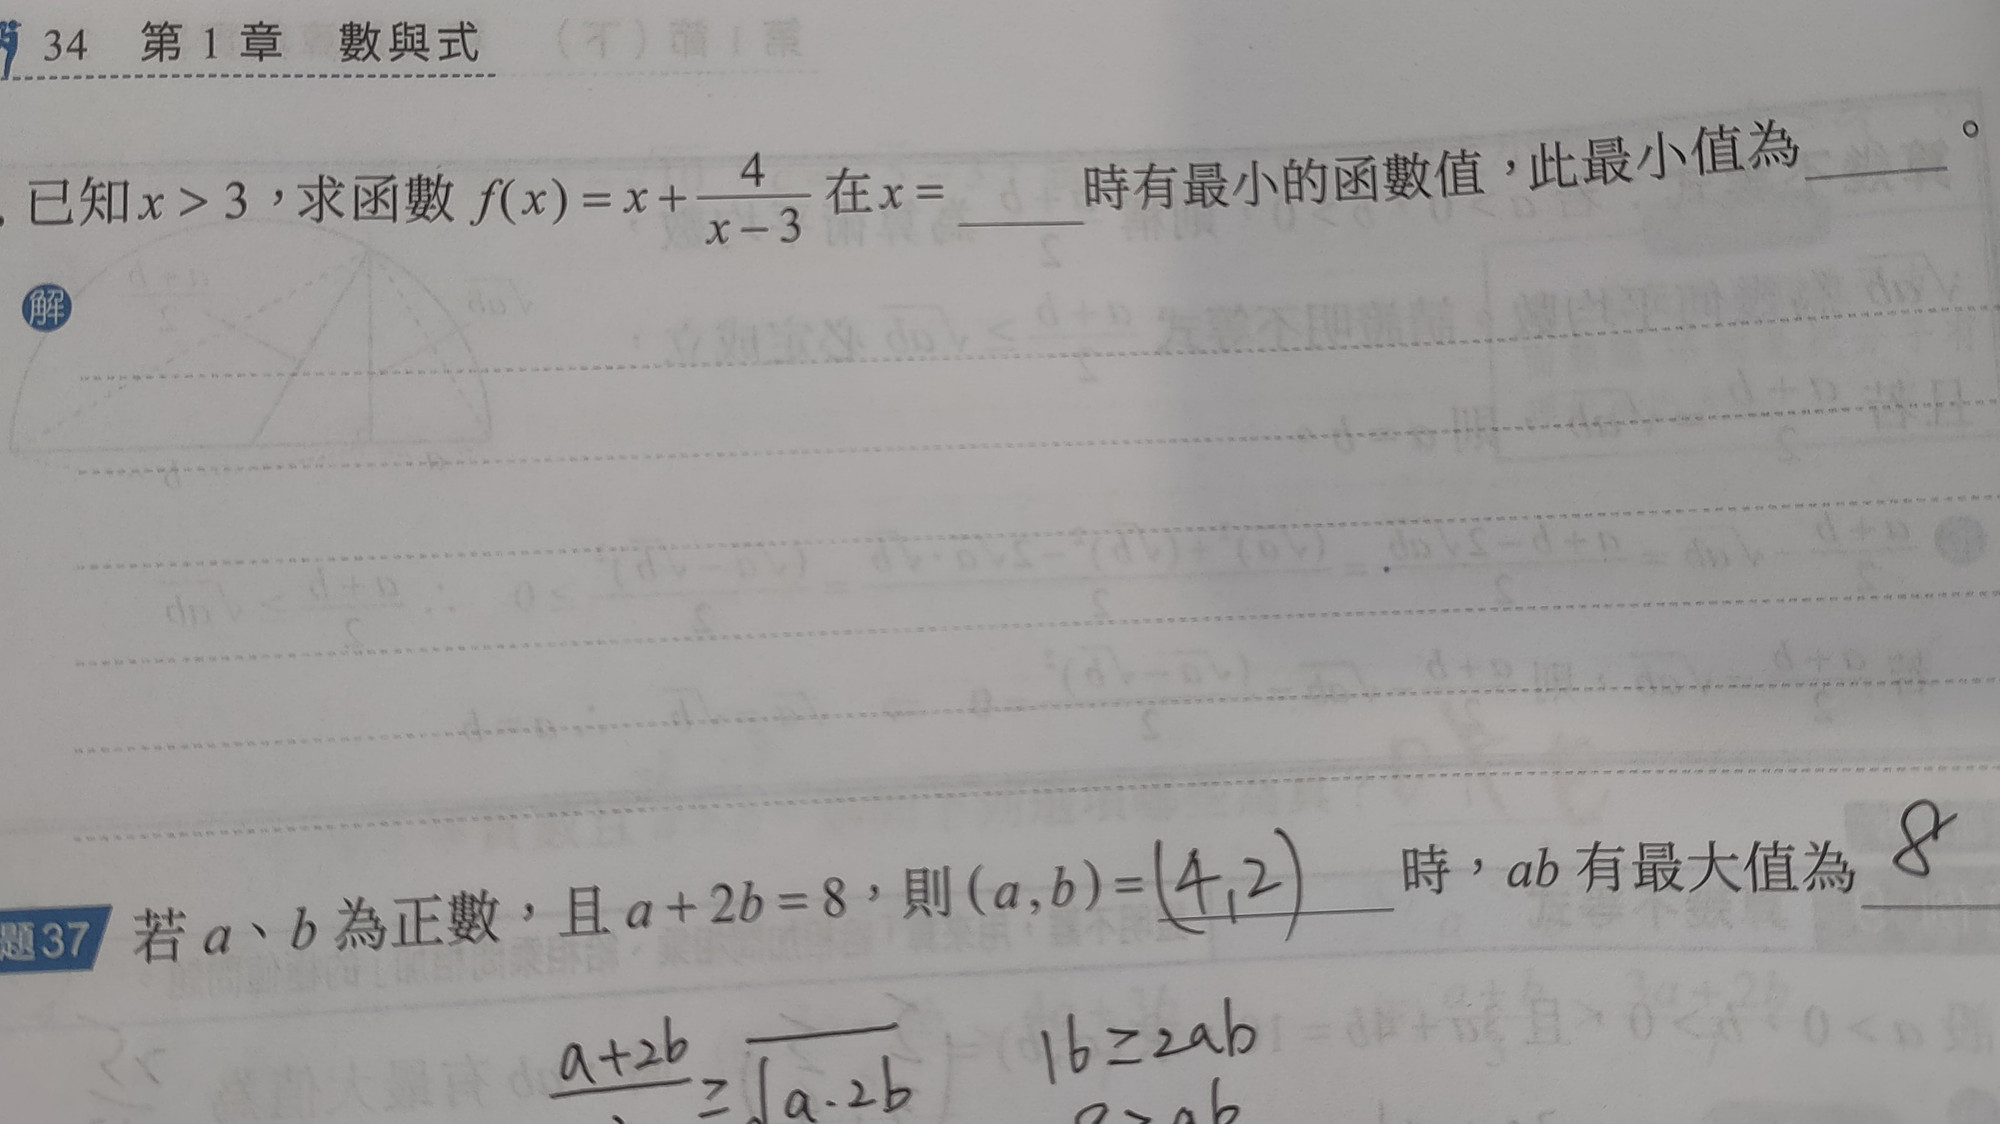 34 第1章 數與式
已知x > 3，求函數 f(x) = x + \frac{4}{x-3} 在 x = ____ 時有最小的函數值，此最小值為____。
解
題37 若 a、b 為正數，且 a + 2b = 8，則 (a, b) = (4,2) 時，ab 有最大值為 8
a+2b ≥ √a·2b 16 ≥ 2ab
≥ab